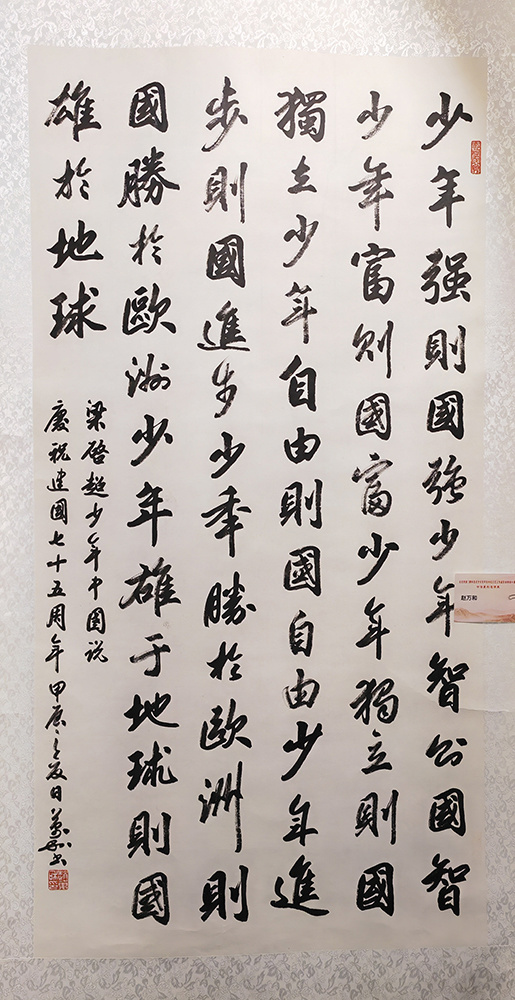 少年强則國強少年智则國智
少年富则國富少年獨立則國
獨立少年自由則國自由少年進
步則國進步少年勝於歐洲則
國勝於歐洲少年雄于地球則國
雄於地球
梁啓超少年中国说
慶祝建國七十五周年甲辰之夏日萬和书
赵万和